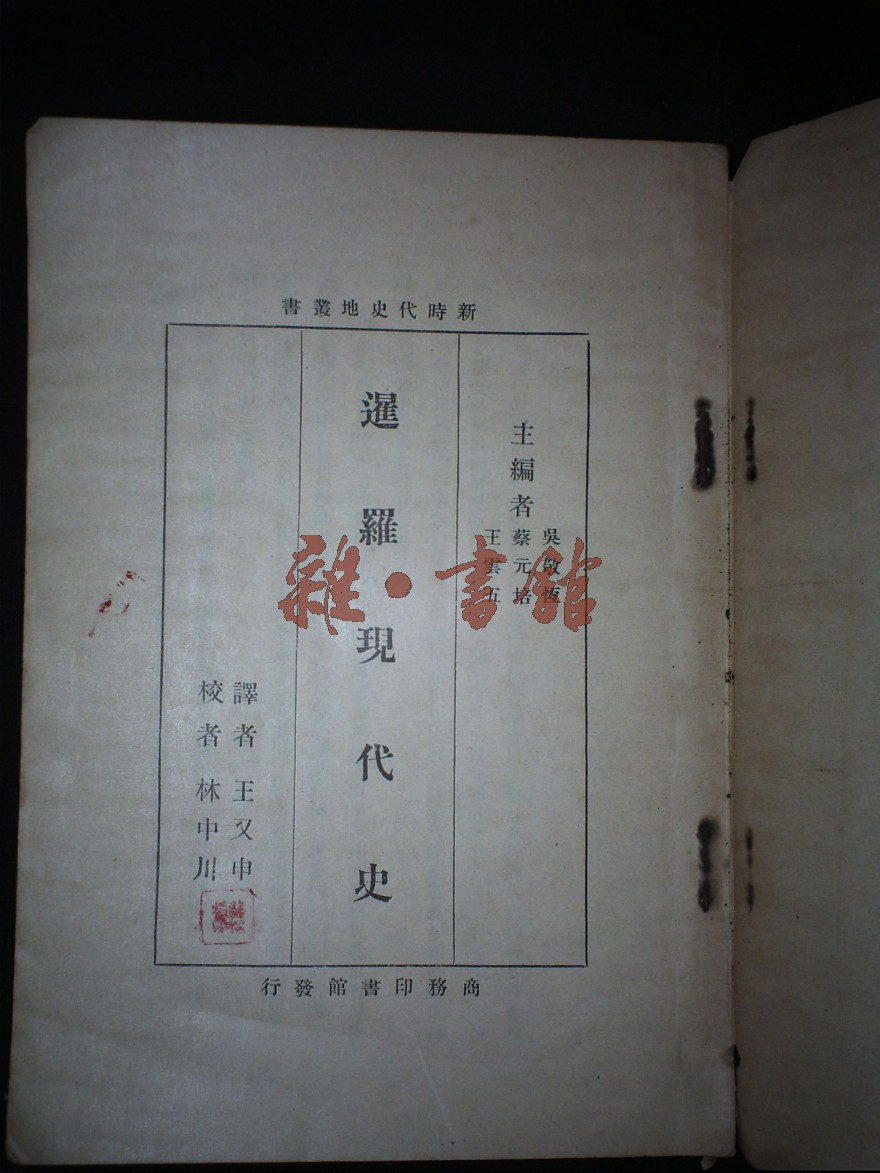 新時代史地叢書
主編者
吳敬恆
蔡元培
王雲五
暹羅現代史
譯者 王又申
校者 林中川
商務印書館發行
雜·書館